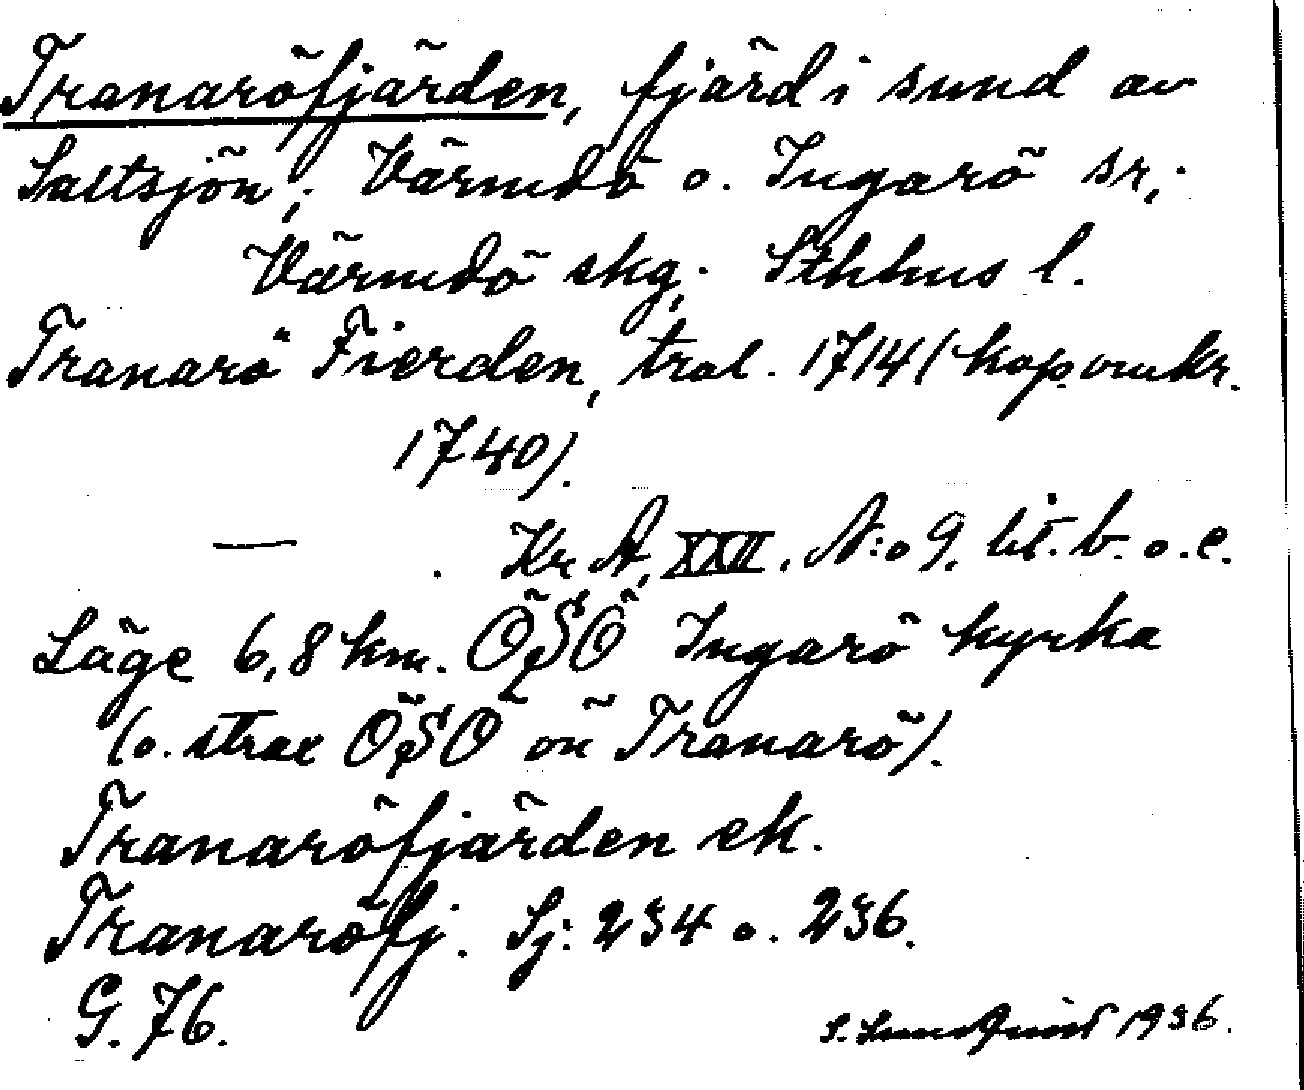 Tranaröfjärden, fjärd i sund av
Saltsjön; Värmdö o. Ingarö sr;
Värmdö skg. Sthlms l.
Tranarö Fierden, tral. 1714 (kop. omkr.
1740).
— Kr. A, XXII. N:o 9. lit. b. o. c.
Läge 6,8 km. ÖSÖ Ingarö kyrka
(o. strax ÖSÖ ön Tranarö).
Tranaröfjärden ek.
Tranaröfj. Sj: 234 o. 236.
G. 76.
1936.